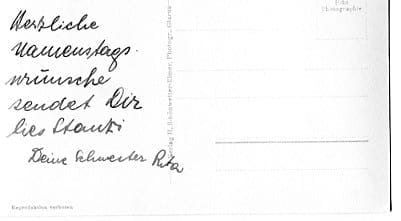 Herzliche
Namenstags
wünsche
sendet Dir
lies Stanti
Deine Schwester Rita
Verlag H. Schönwetter-Elmer, Photogr. Glarus
Foto
Photographie
Reproduktion verboten